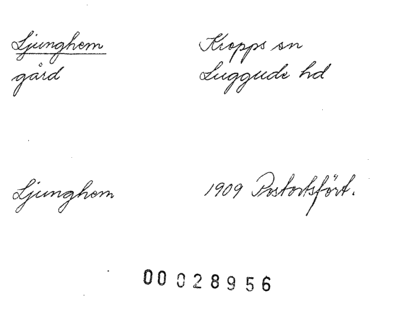 Ljunghem
gård
Kropps sn
Luggude hd
Ljunghem
1909 Postortsfört.
00028956